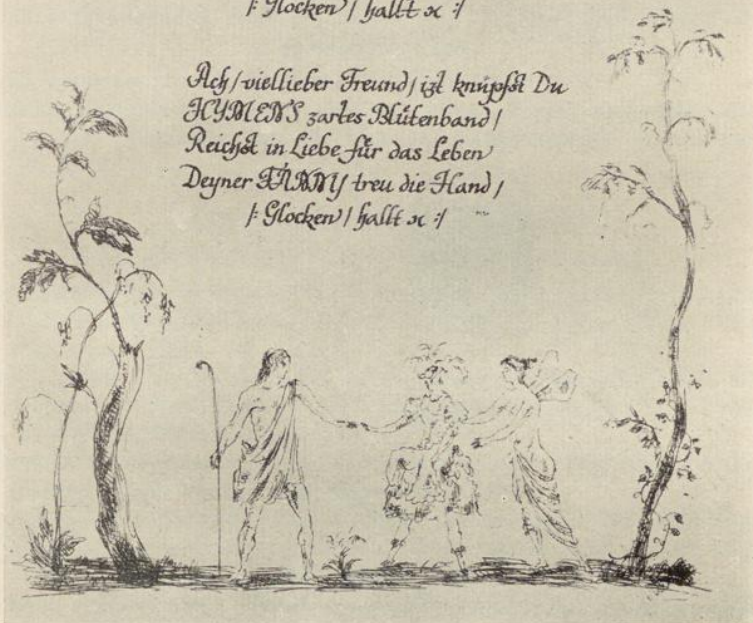 /: Glocken / hallt ꝛc :/
Ach / viellieber Freund / izt knüpfst Du
HYMENS zartes Blütenband /
Reichst in Liebe für das Leben
Deyner FANNY treu die Hand /
/: Glocken / hallt ꝛc :/